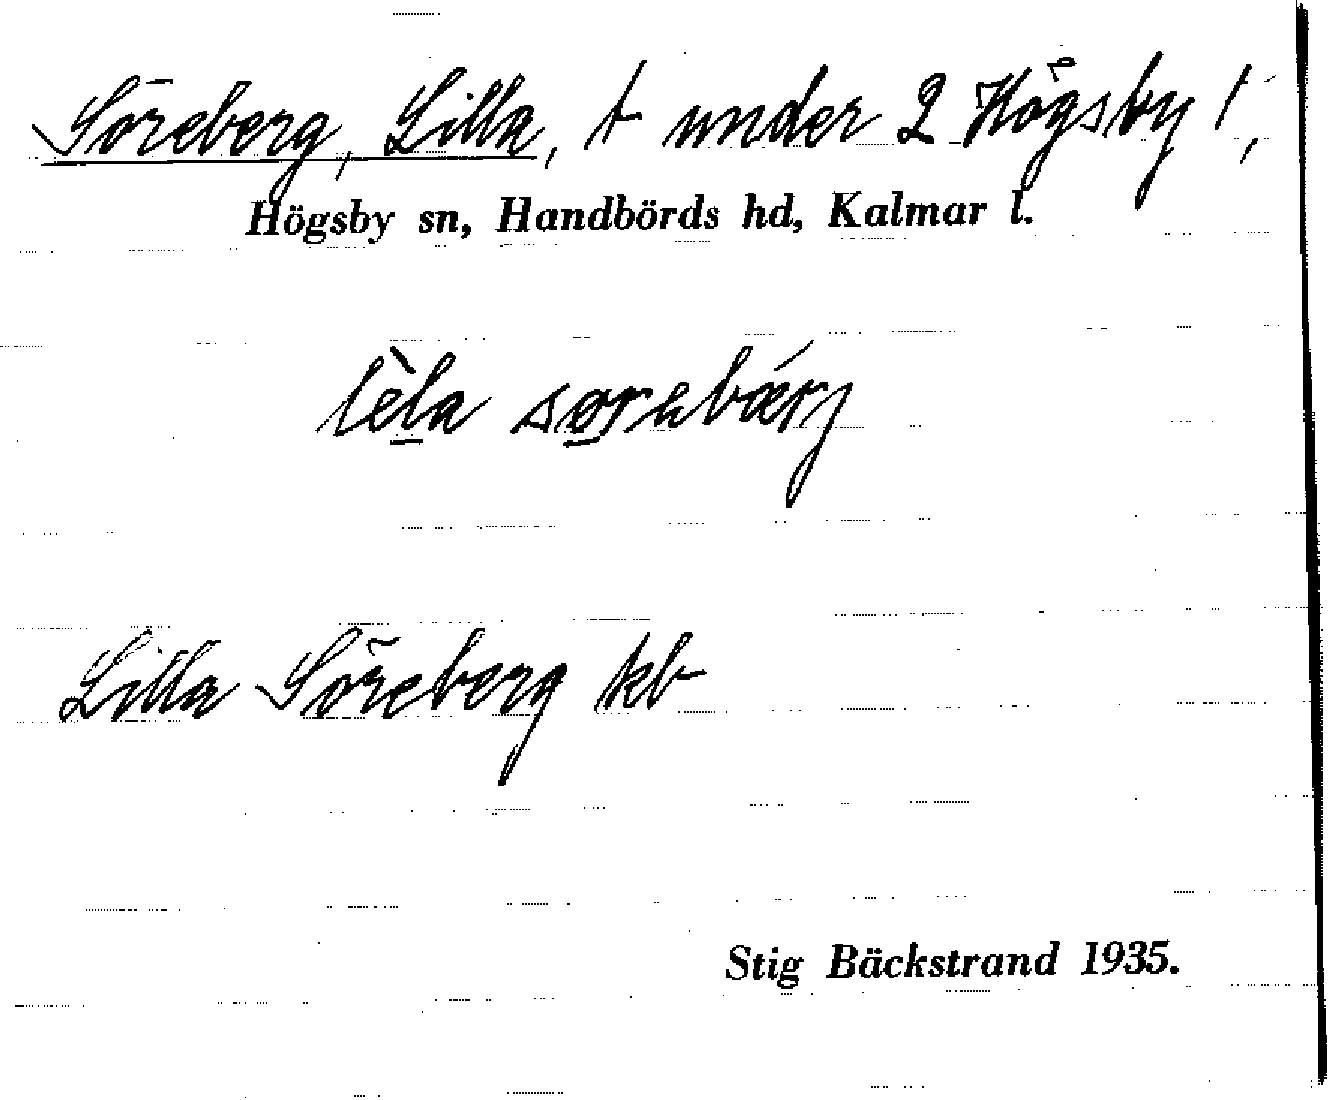 Söreberg, Lilla, t under 2 Högsby 1,
Högsby sn, Handbörds hd, Kalmar l.
lèla
Lilla Söreberg kb
Stig Bäckstrand 1935.